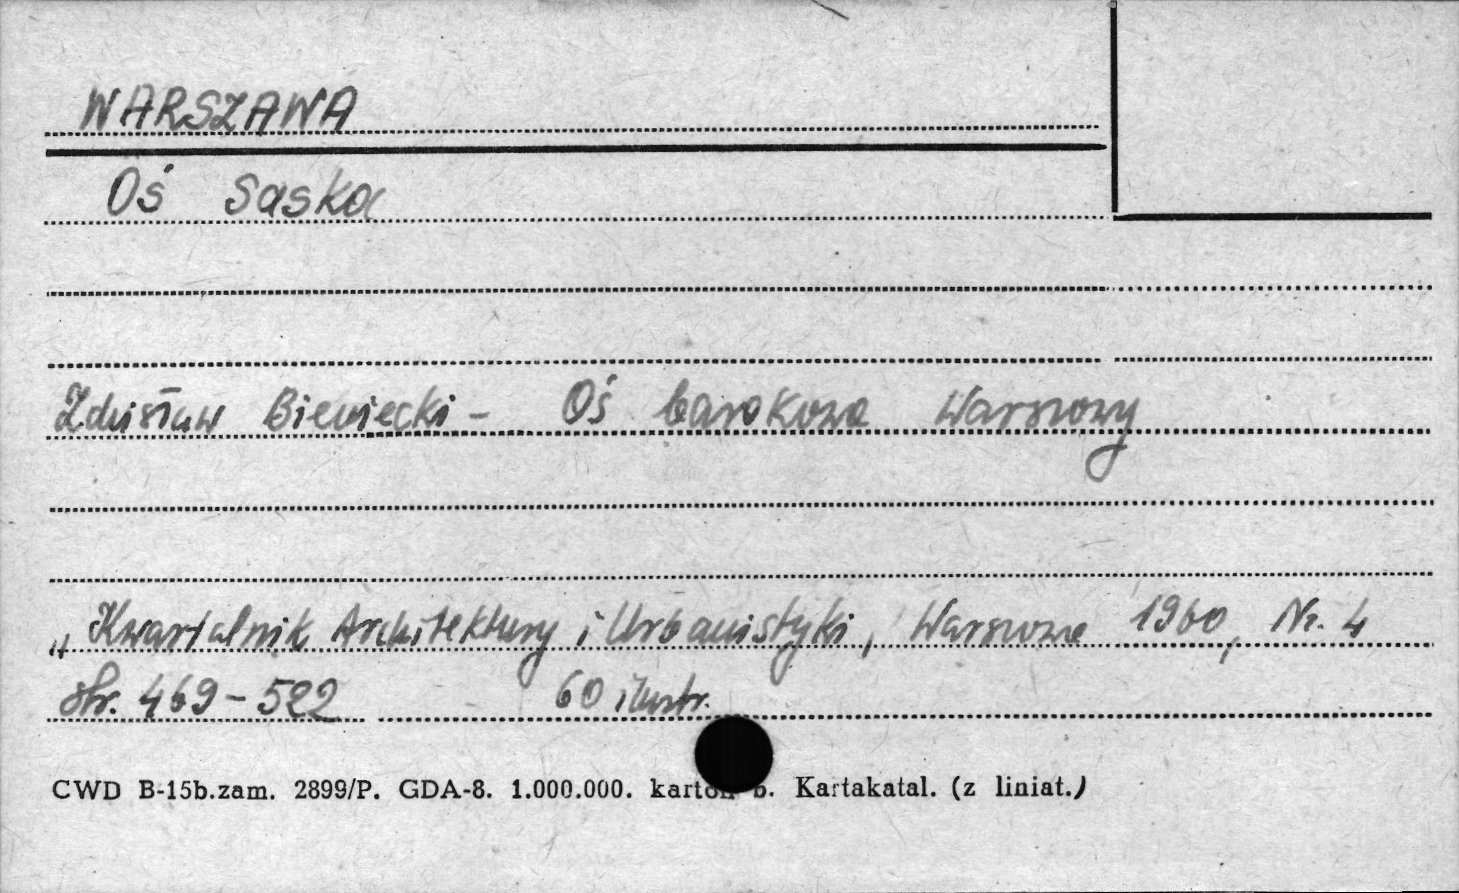 WARSZAWA
Oś Saska
Zdzisław Bieniecki - Oś barokowa Warszawy
„Kwartalnik Architektury i Urbanistyki, Warszawa 1960, Nr. 4
str. 469-522 60 ilustr.
CWD B-15b.zam. 2899/P. GDA-8. 1.000.000. karton b. Kartakatal. (z liniat.)